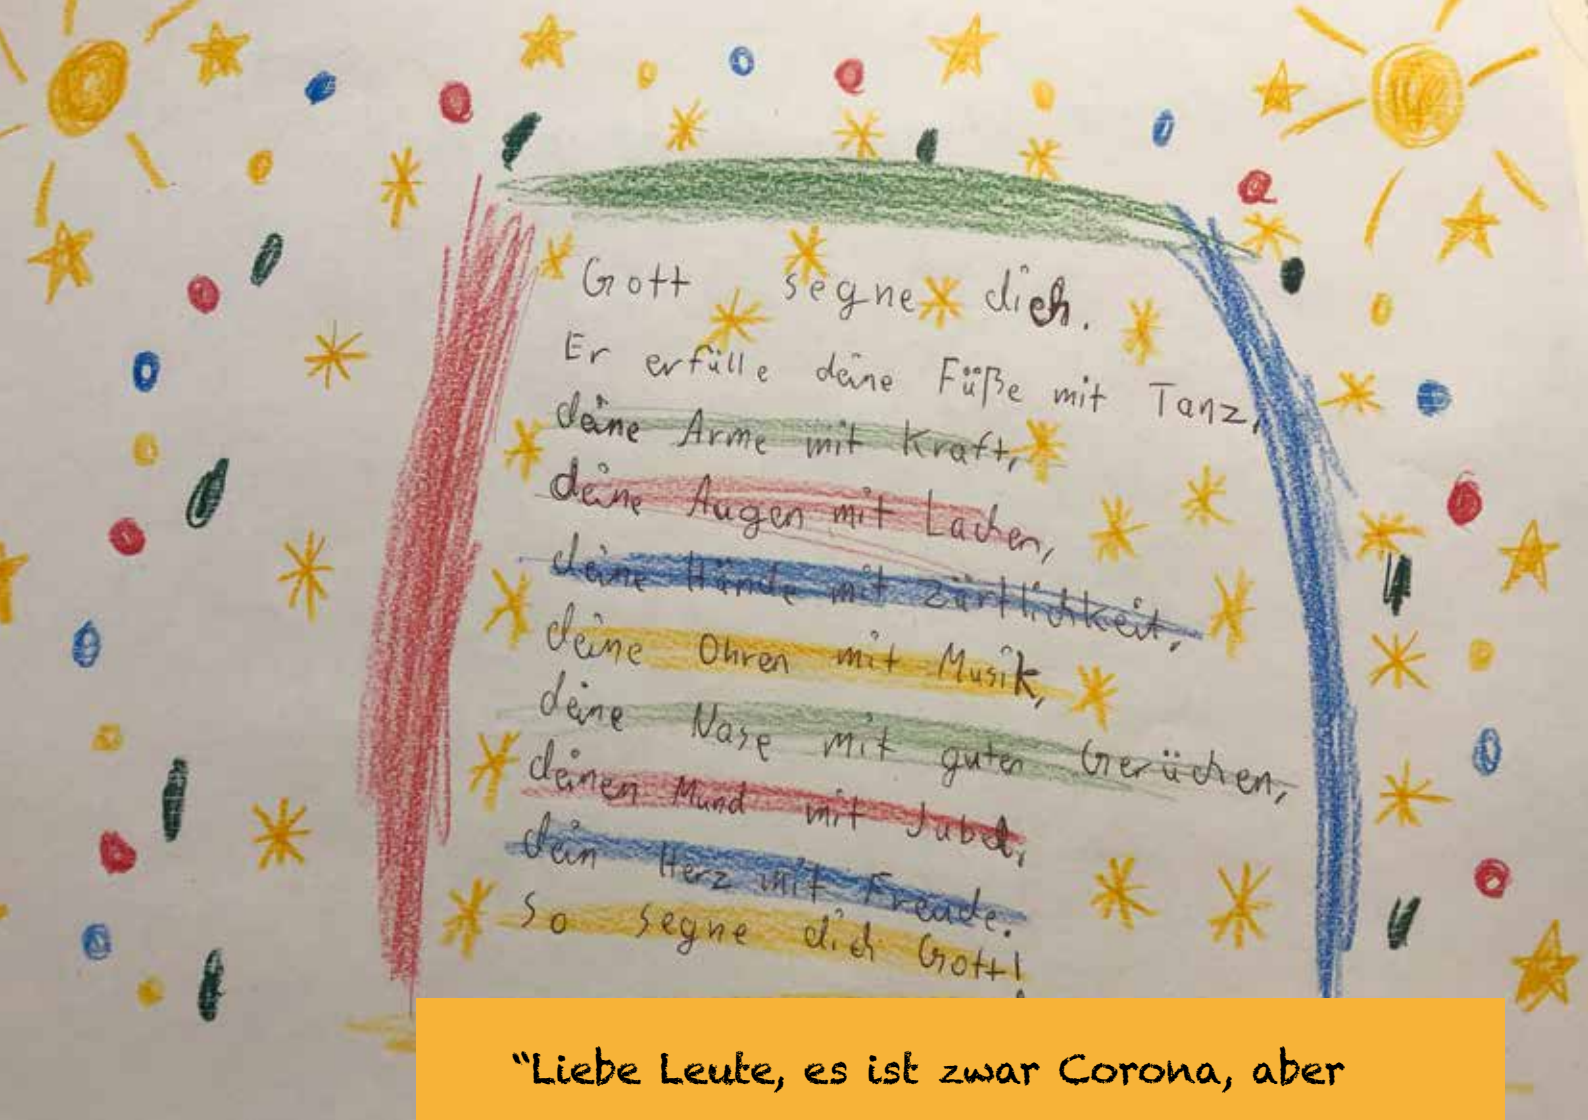 Gott segne dich.
Er erfülle deine Füße mit Tanz,
deine Arme mit Kraft,
deine Augen mit Lachen,
deine Hände mit Zärtlichkeit,
deine Ohren mit Musik,
deine Nase mit guten Gerüchen,
deinen Mund mit Jubel,
dein Herz mit Freude.
So segne dich Gott!
“Liebe Leute, es ist zwar Corona, aber